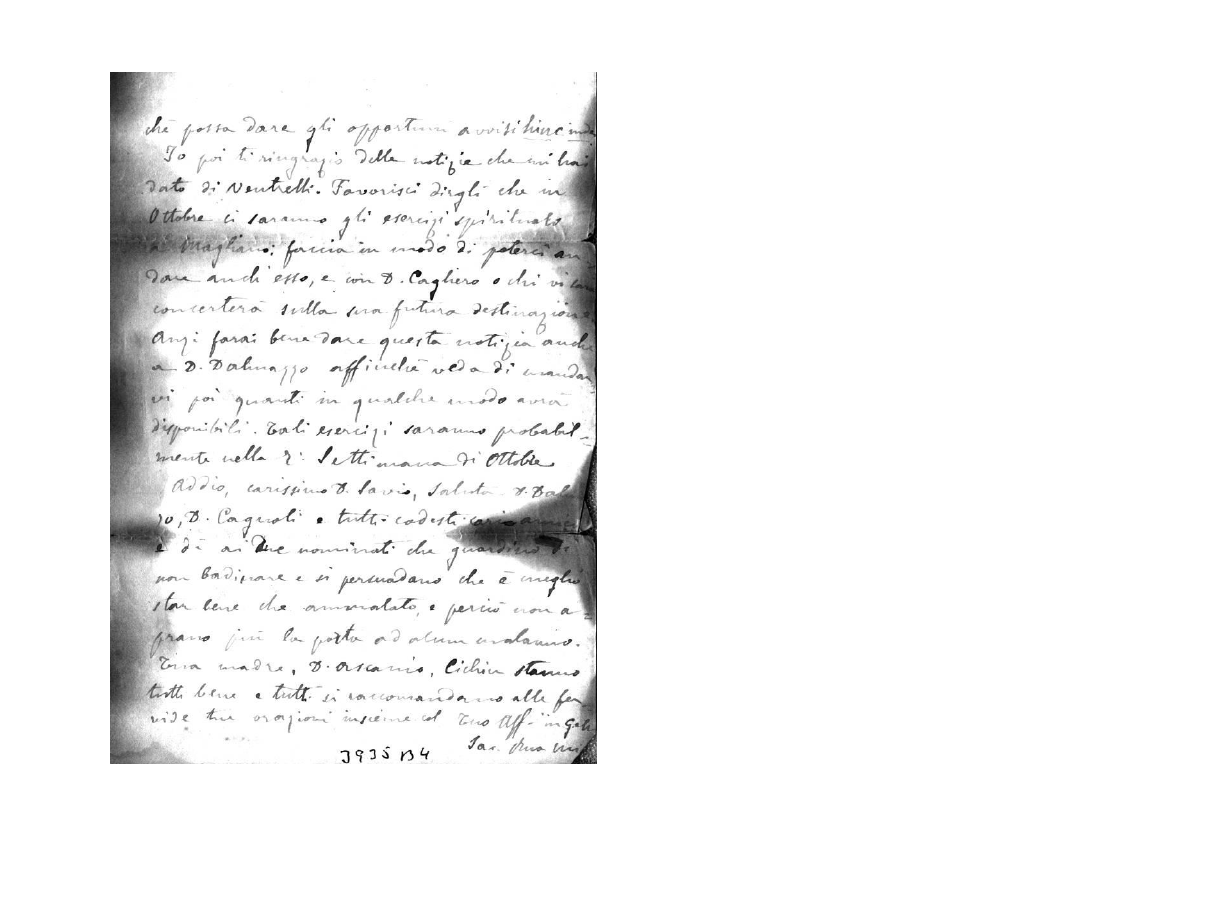 che possa dare gli opportuni avvisi hinc inde
Io poi ti ringrazio delle notizie che mi hai
dato di Ventrelli. Favorisci dirgli che in
Ottobre ci saranno gli esercizi spirituali
a Magliano; faccia in modo di poterci an-
dare anch'esso, e con D. Cagliero o chi vi sarà
concerterà sulla sua futura destinazione
Anzi farai bene dare questa notizia anche
a D. Dalmazzo affinchè veda di mandar
vi poi quanti in qualche modo avrà
disponibili. Tali esercizi saranno probabil-
mente nella 2ª Settimana di Ottobre
Addio, carissimo D. Savio, saluta D. Dal
zo, D. Cagnoli e tutti codesti cari amici
e dì ai due nominati che guardino di
non badinare e si persuadano che è meglio
star bene che ammalato, e perciò non a=
prano più la porta ad alcun malanno.
Tua madre, D. Ascanio, Cichin stanno
tutti bene e tutti si raccomandano alle fer
vide tue orazioni insieme col Tuo Aff. in G.
Sac. Rua
3935 B4